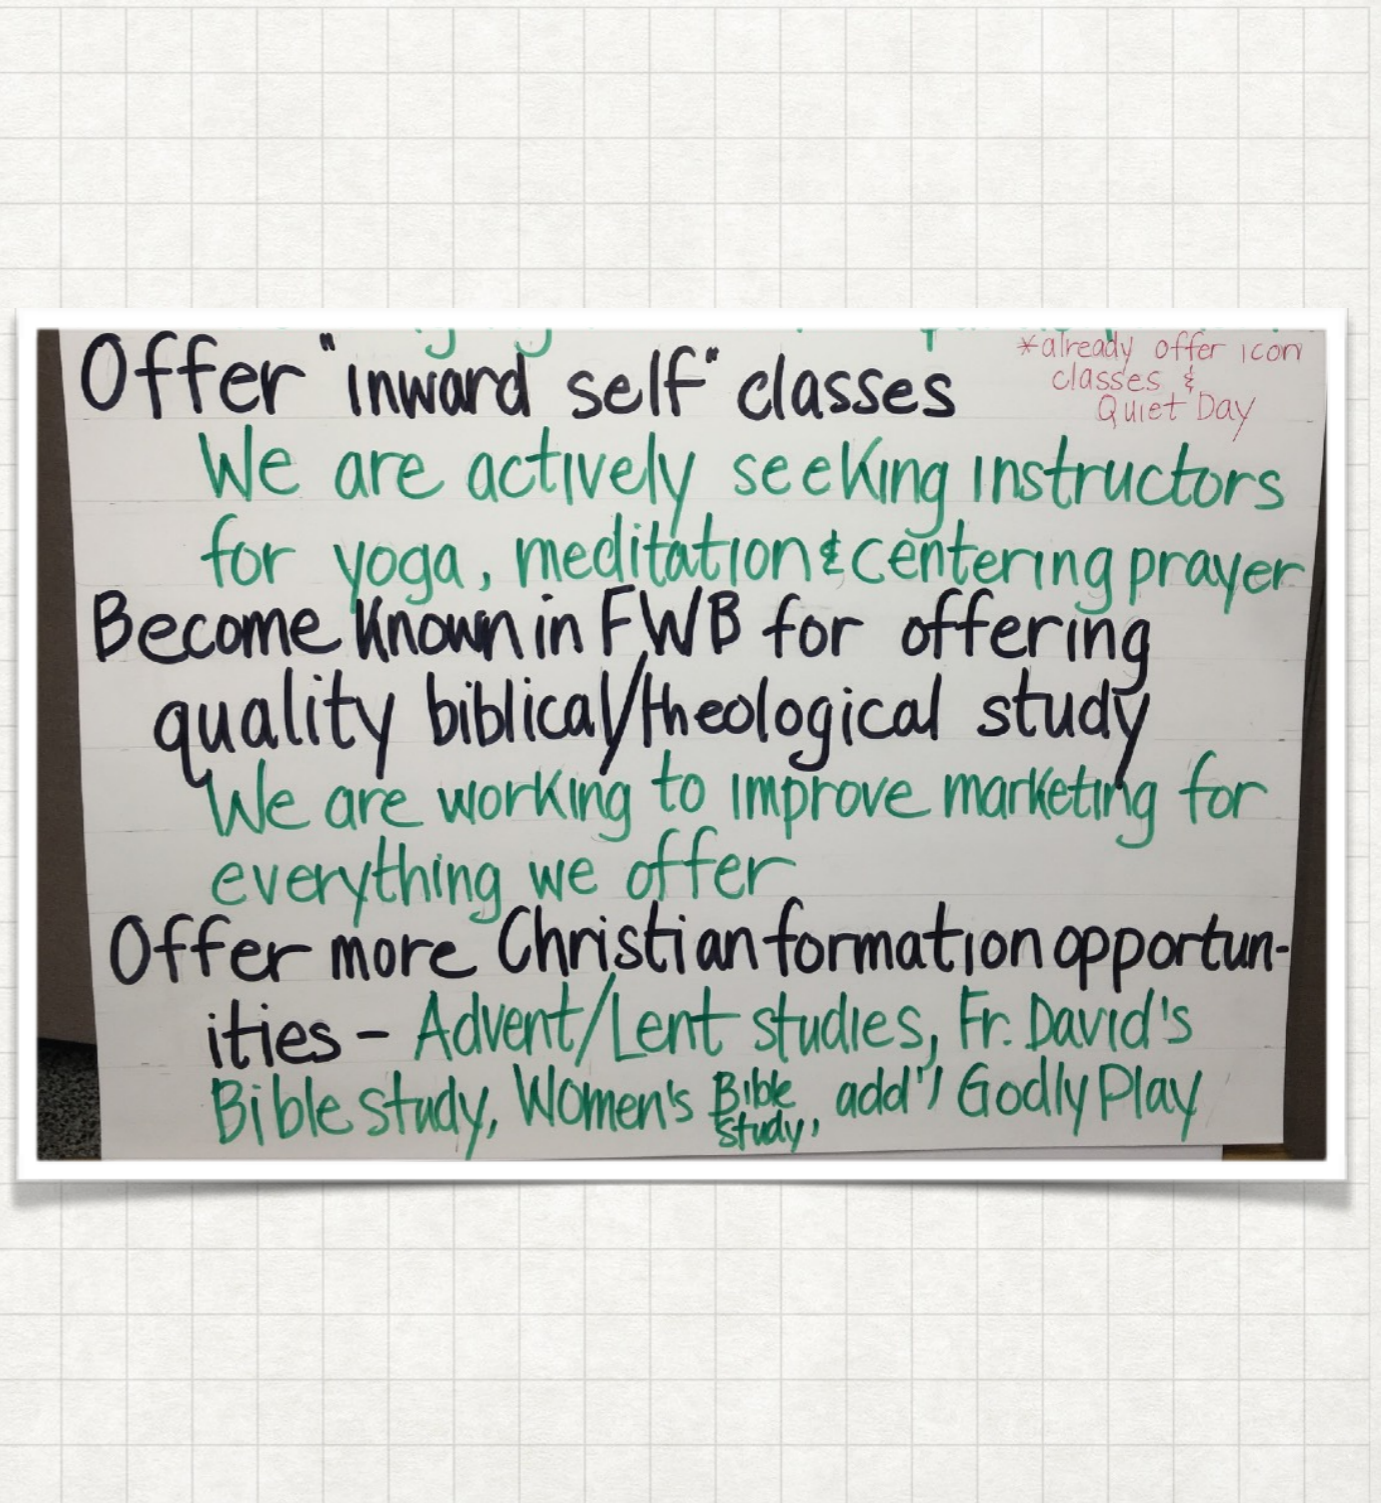 Offer "inward self" classes
*already offer icon
classes &
Quiet Day
We are actively seeking instructors
for yoga, meditation & centering prayer
Become known in FWB for offering
quality biblical/theological study
We are working to improve marketing for
everything we offer
Offer more Christian formation opportun-
ities - Advent/Lent studies, Fr. David's
Bible study, Women's Bible study, add'l Godly Play